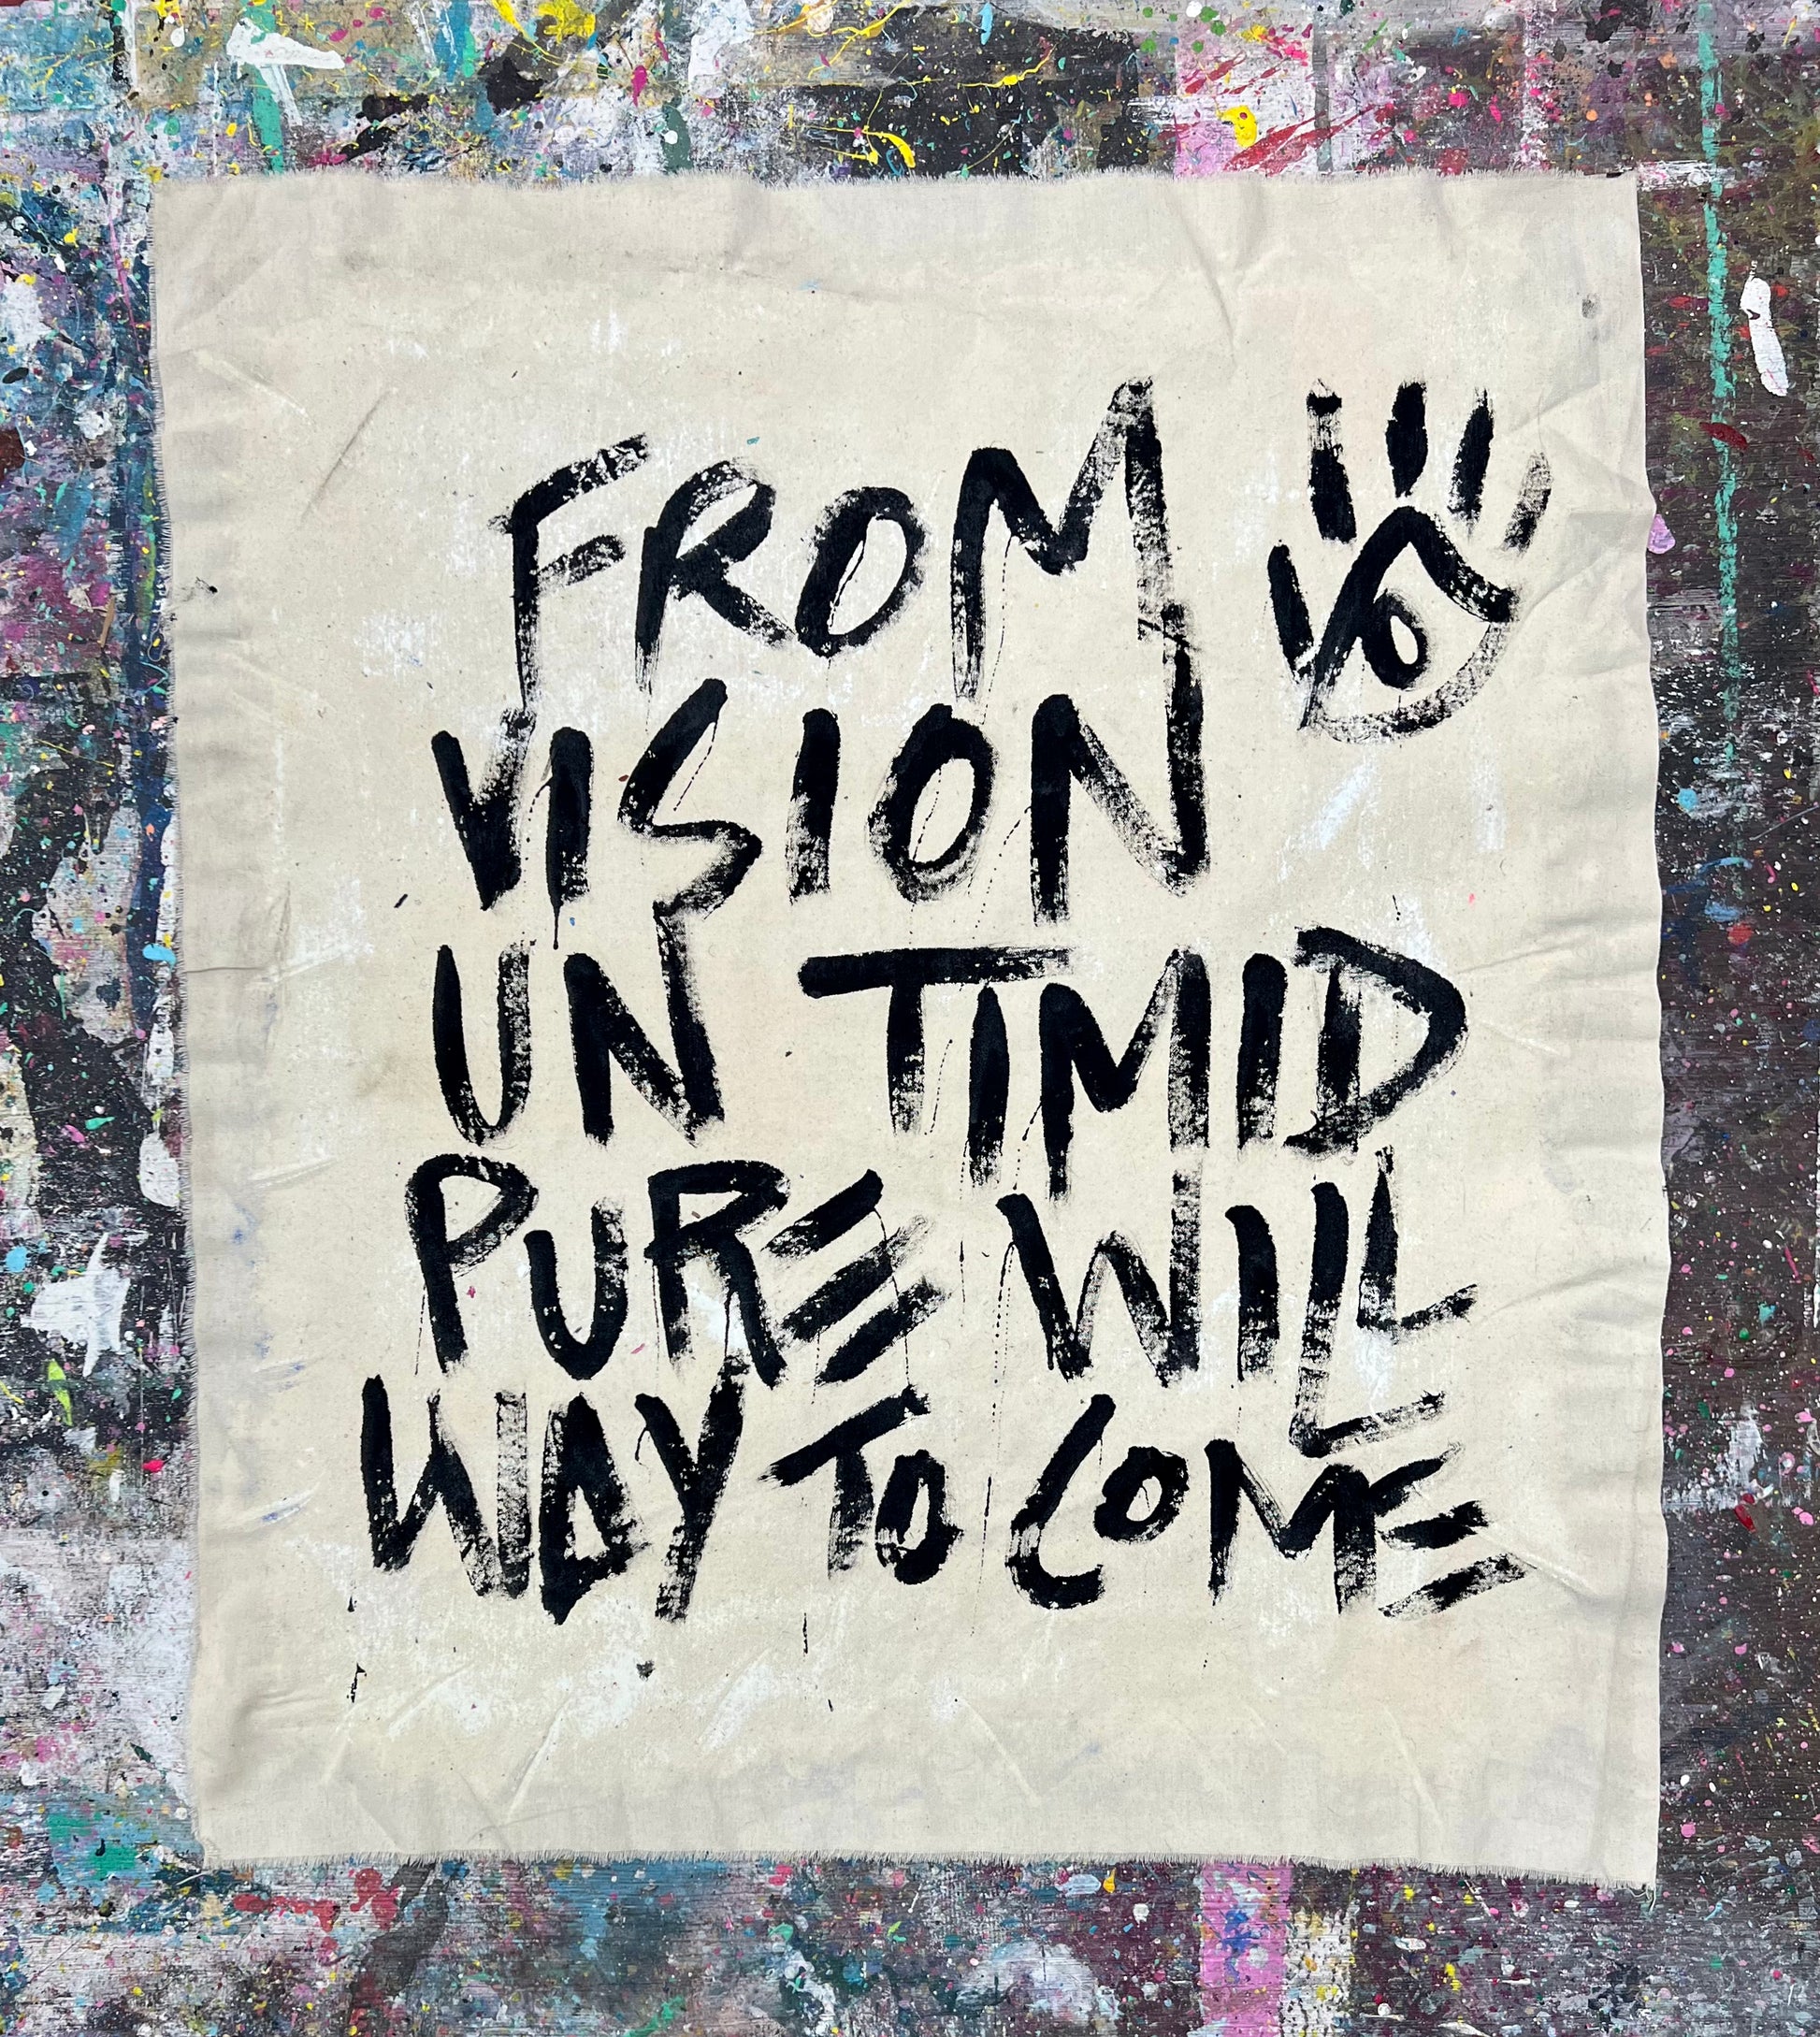 FROM
VISION
UN TIMID
PURE WILL
WAY TO COME